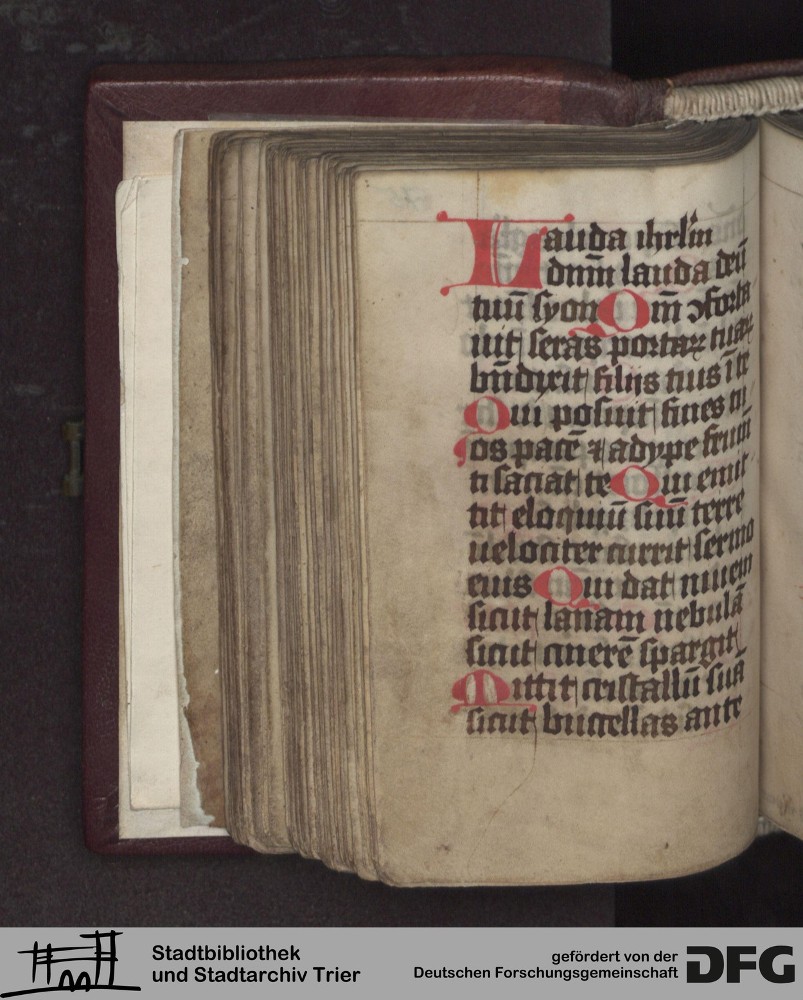 Lauda ihrlm̄
dnm̄ lauda deū
tuū syon Qm̄ ↄforta
uit seras portaꝝ tuaꝝ
bn̄dixit filiis tuis ī te
Qui posuit fines tu
os pacē ⁊ adype frum̄
ti saciat te Qui emit
tit eloquiū suū terre
uelociter currit sermo
eius Qui dat niuem
sicut lanam nebulā
sicut cinerē spargit
Mittit cristallū suā
sicut bucellas ante
Stadtbibliothek
und Stadtarchiv Trier
gefördert von der
Deutschen Forschungsgemeinschaft
DFG